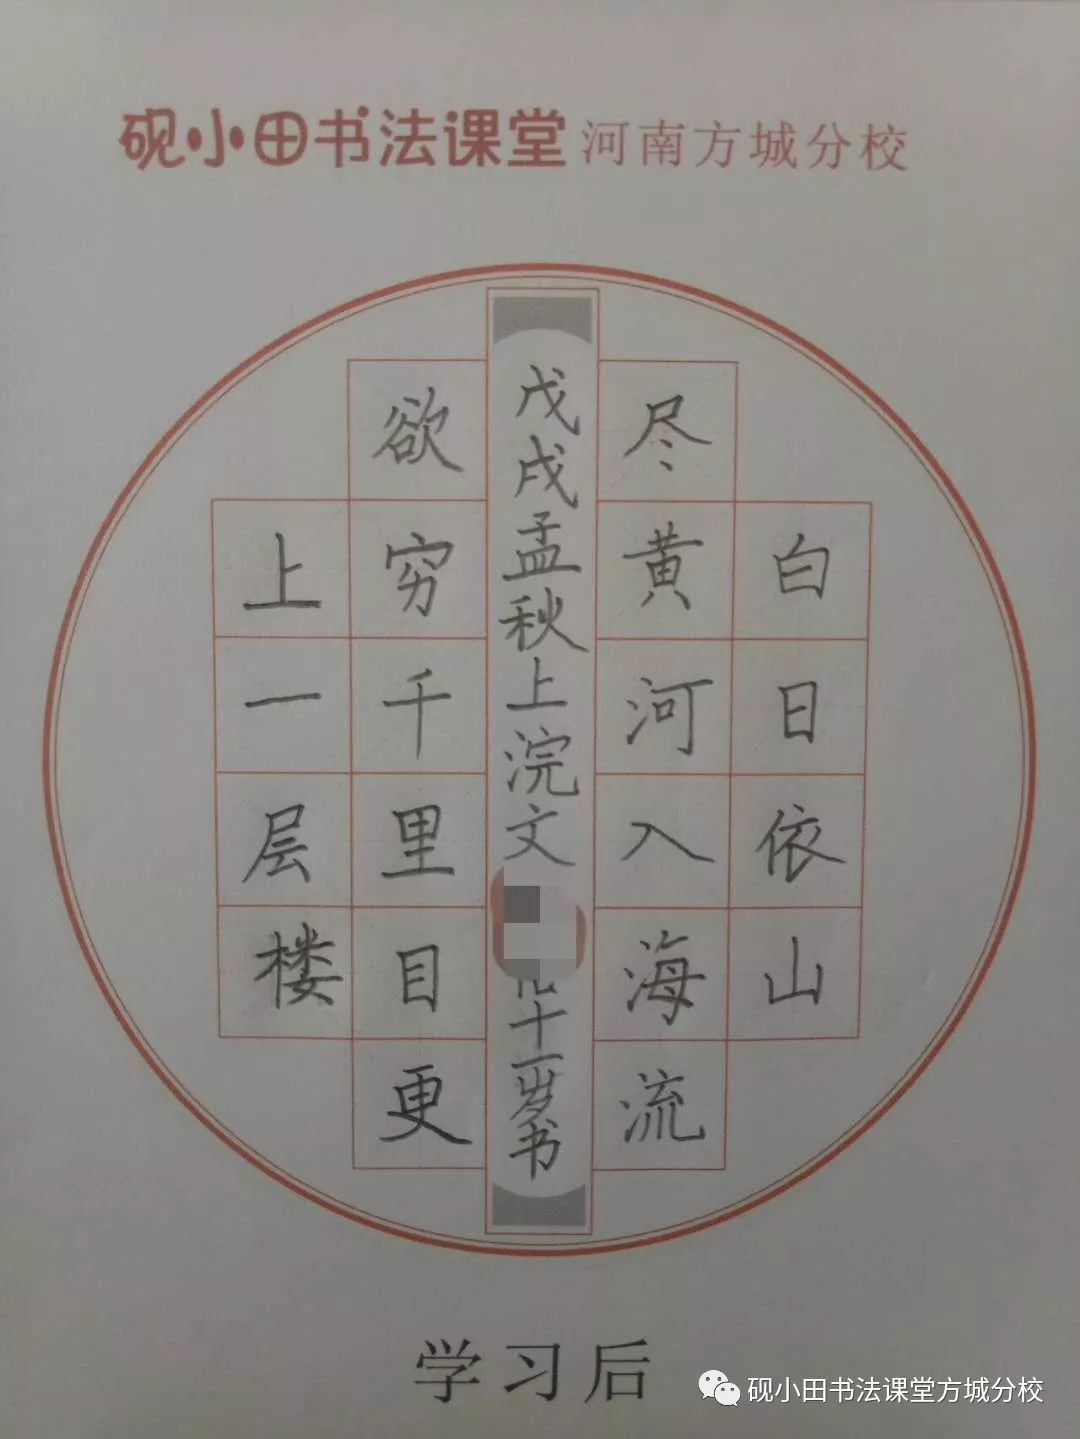 砚小田书法课堂 河南方城分校
白日依山
尽黄河入海流
戊戌孟秋上浣文
十一岁书
欲穷千里目更
上一层楼
学习后
砚小田书法课堂方城分校